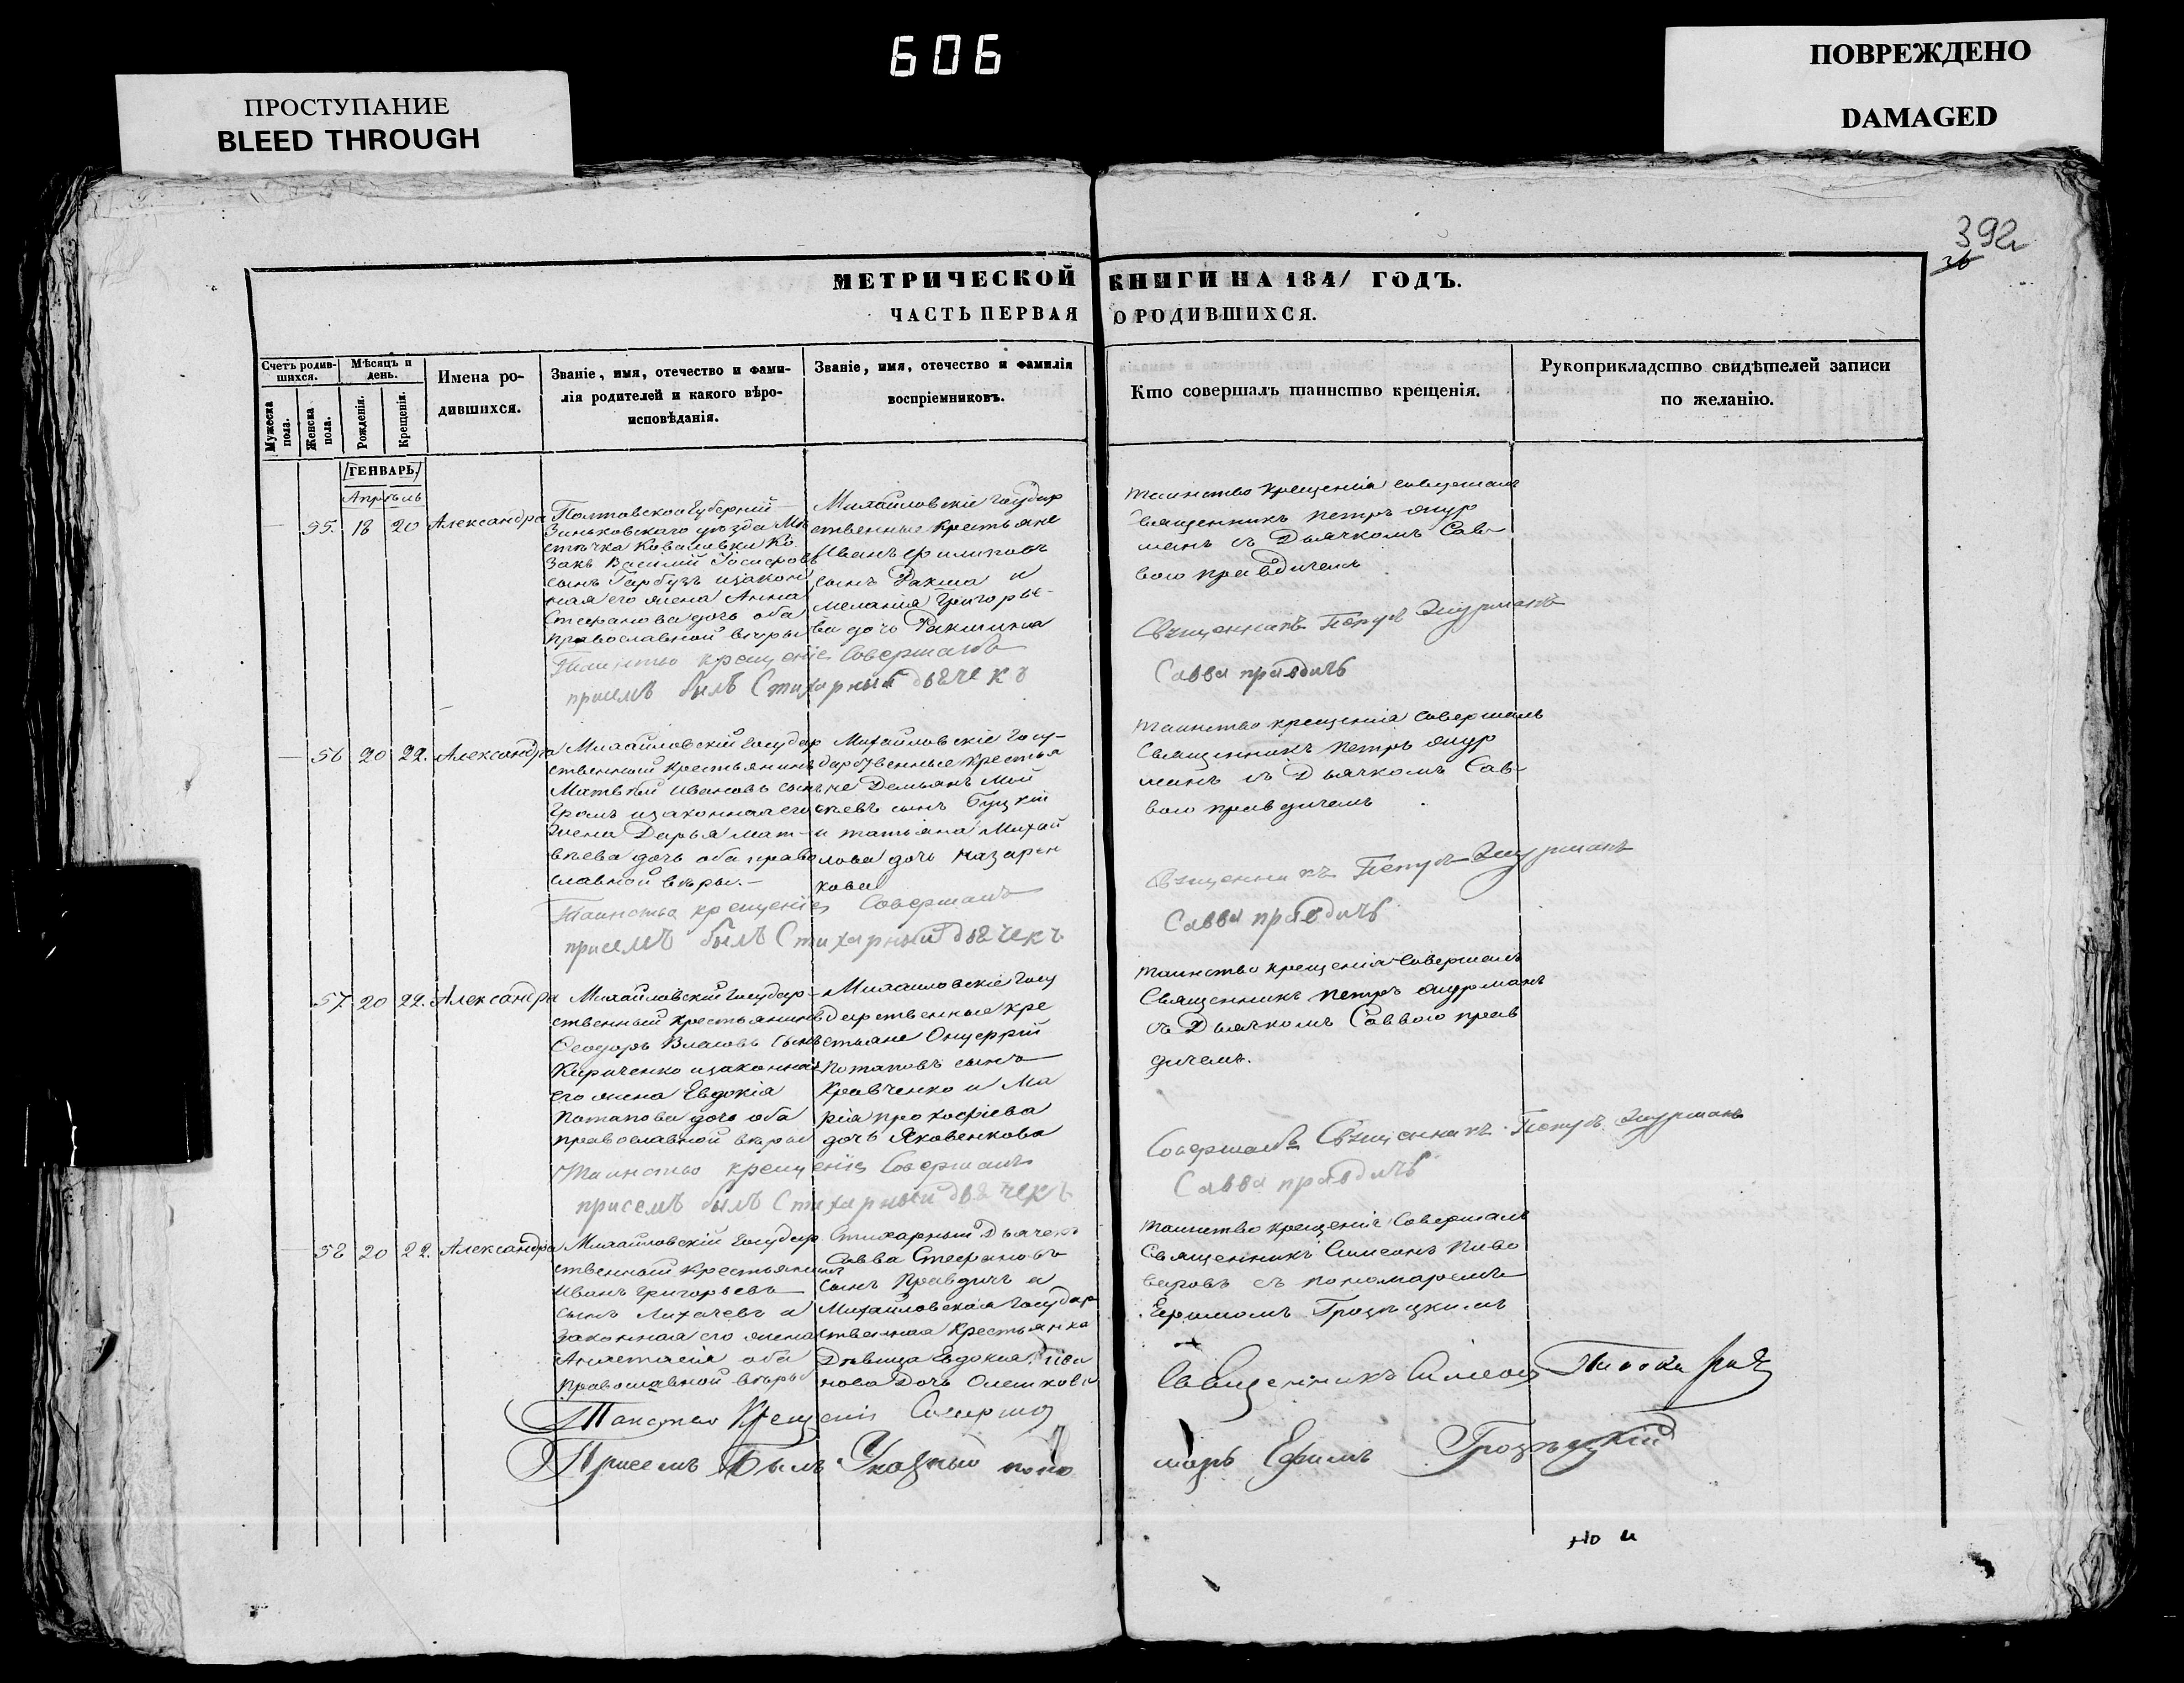 606
ПРОСТУПАНИЕ
BLEED THROUGH
ПОВРЕЖДЕНО
DAMAGED
392
36
МЕТРИЧЕСКОЙ КНИГИ НА 1841 ГОДЪ.
ЧАСТЬ ПЕРВАЯ О РОДИВШИХСЯ.
Счетъ родив-
шихся.
Мужеска
пола.
Женска
пола.
Мѣсяцъ и
день.
Рожденія.
Крещенія.
Имена ро-
дившихся.
Званіе, имя, отечество и фами-
лія родителей и какого вѣро-
исповѣданія.
Званіе, имя, отечество и фамилія
воспріемниковъ.
Кто совершалъ таинство крещенія.
Рукоприкладство свидѣтелей записи
по желанію.
ГЕНВАРЬ.
Апрѣль
55. 18 20 Александра
Полтавской Губерніи
Зиньковскаго уѣзда Мѣ
стѣчка Ковалевки Ко
закъ Василій Іосифовъ
сынъ Гарбузъ изакон
ная его жена Анна
Стефанова дочь оба
православной вѣры
Михайловскіе Государ
ственные крестьяне
Иванъ Филиповъ
сынъ Ракша и
меланія Григорье-
ва дочь Ракшина
таинство крещенія совершалъ
Священникъ петръ
съ Дьячкомъ Сав-
вою правдичемъ
Таинство крещенія Совершалъ
Священникъ Петръ
присемъ былъ Стихарный дьячекъ
Савва правдичъ
56 20 22. Александра
Михайловскій Государ
ственный крестьянинъ
Матвѣй Ивановъ сынъ
изаконная его
жена Дарья Мат-
вѣева дочь оба право
славной вѣры.
Михайловскіе Госу-
дарственные крестья
не Демьянъ Мой
сѣевъ сынъ Буцкій
и татьяна Михай
лова дочь Назарен
кова
таинство крещенія совершалъ
Священникъ петръ
съ Дьячкомъ Сав-
вою правдичемъ
Таинство крещенія Совершалъ
Священникъ Петръ
присемъ былъ Стихарный дьячекъ
Савва правдичъ
57 20 22. Александра
Михайловскій Государ-
ственный крестьянинъ
Феодоръ Власовъ сынъ
Кириченко изаконная
его жена Евдокія
Потапова дочь оба
православной вѣры
Михайловскіе Госу
дарственные кре
стьяне Онуфрій
Потаповъ сынъ
Кравченко и Ма
рія прокофіева
дочь Яковенкова
таинство крещенія совершалъ
Священникъ петръ
съ Дьячкомъ Саввою прав
дичемъ.
Таинство крещенія Совершалъ
Совершалъ Священникъ Петръ
присемъ былъ Стихарный дьячекъ
Савва правдичъ
58 20 22. Александра
Михайловскій Государ
ственный Крестьянинъ
Иванъ Григорьевъ
сынъ Лихачевъ а
законная его жена
Анастасія оба
Православной вѣры
Стихарный Дьячекъ
Савва Стефановъ
Сынъ Правдичъ а
Михайловская Государ
ственная Крестьянка
Дѣвица Евдокія
нова Дочь
таинство крещенія Совершалъ
Священникъ Симеонъ Пиво
варовъ съ пономаремъ
Ефимомъ
Таинство Крещенія
Священникъ Симеонъ
Присемъ Былъ Указный поно
марь Ефимъ
но и